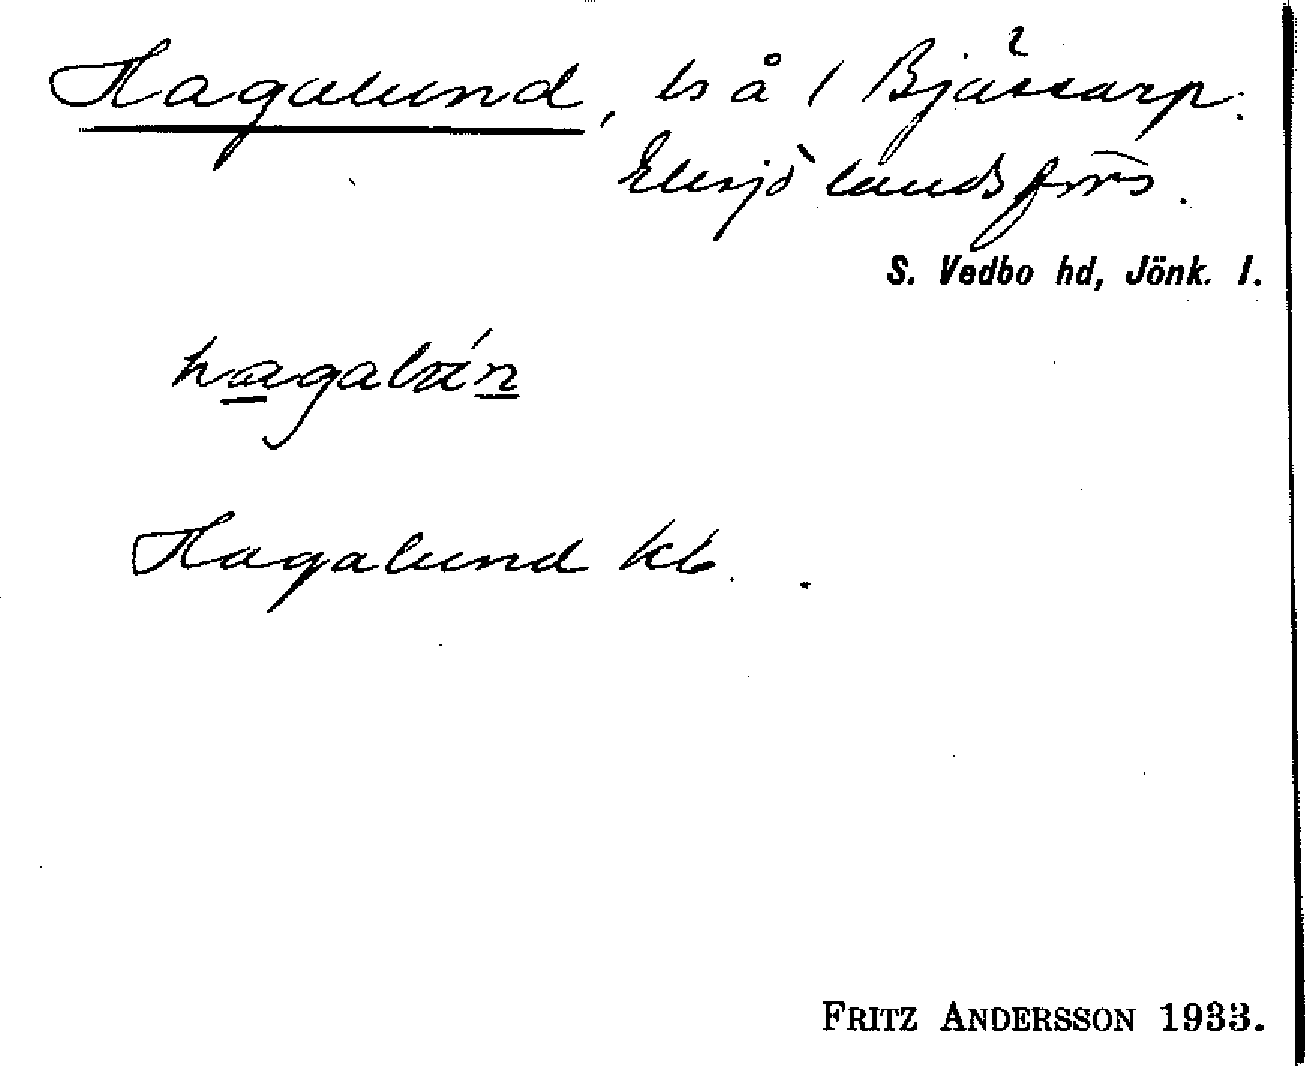 Hagalund, ls å 1 Bjässarp.
Eksjö landsförs.
S. Vedbo hd, Jönk. l.
Hagalund kb.
FRITZ ANDERSSON 1933.